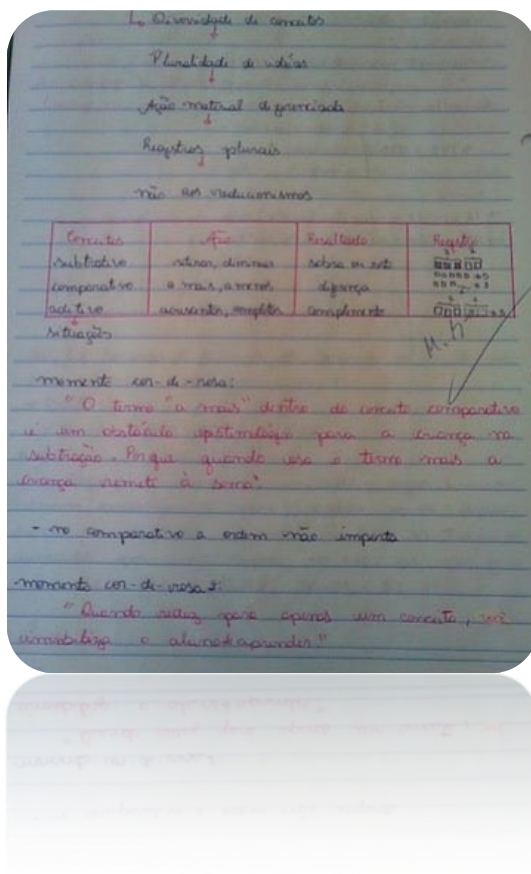 Diversidade de conceitos
Pluralidade de idéias
Ação material diferenciada
Registros plurais
não aos reducionismos
Conceitos Ação Resultado Registro
subtrativo retirar, diminuir sobra ou resto
comparativo a mais, a menos diferença
aditivo acrescentar, completar complemento
situações
momento cor-de-rosa:
"O termo "a mais" dentro do conceito comparativo
é um obstáculo epistemológico para a criança na
subtração. Porque quando usa o termo mais a
criança remete à soma".
- no comparativo a ordem não importa
-momento cor-de-rosa 2:
"Quando reduz para apenas um conceito, você
imobiliza o aluno a aprender."